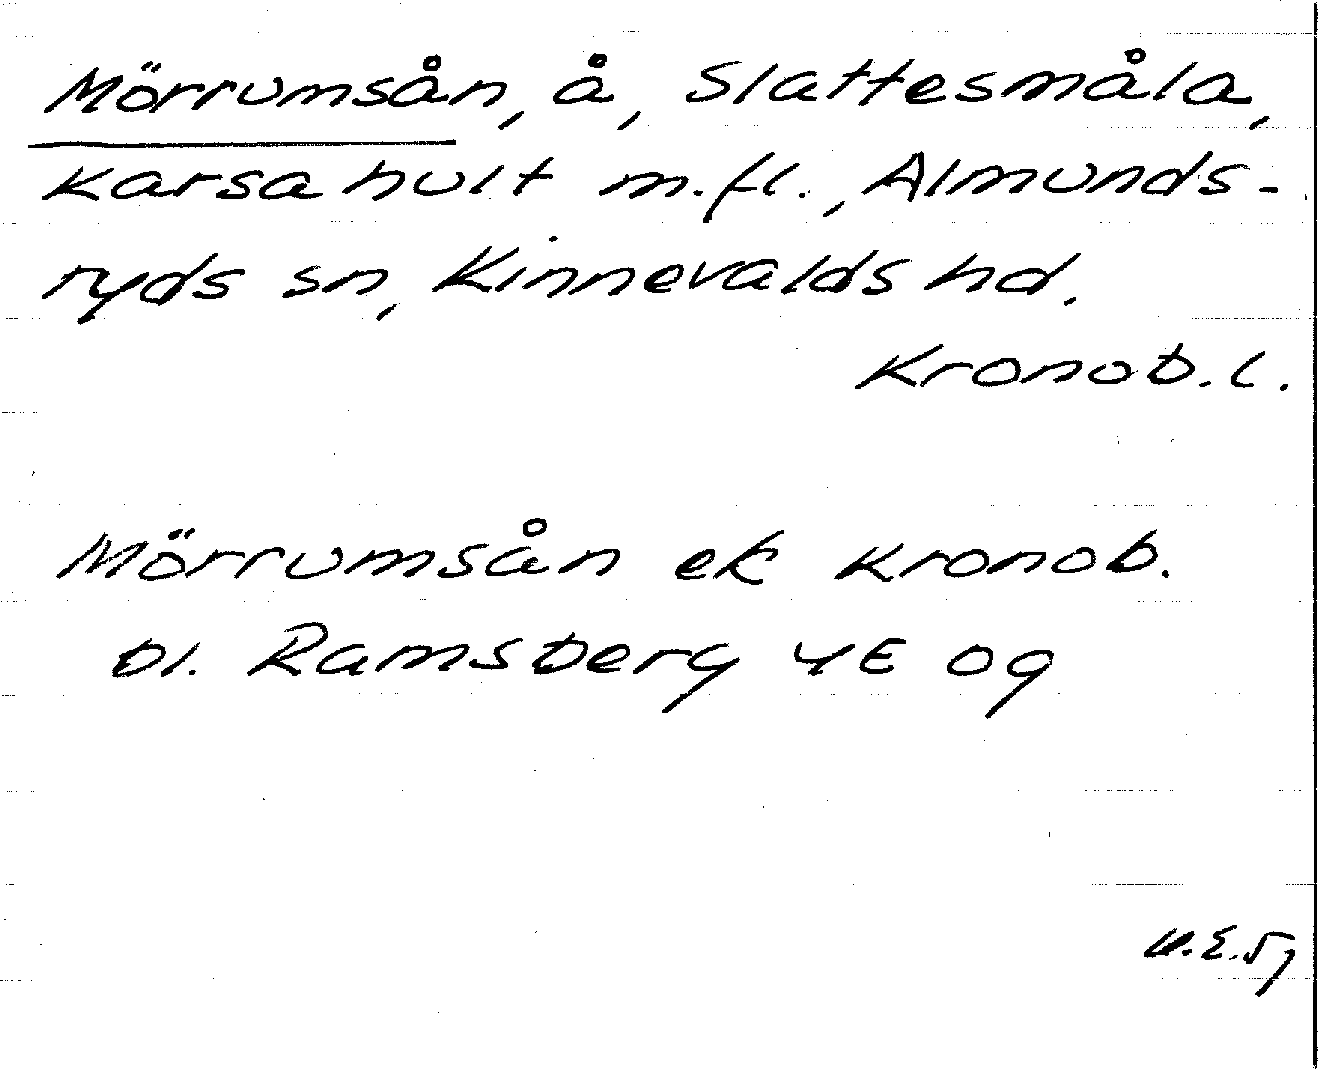 Mörrumsån, å, Slattesmåla,
Karsahult m.fl., Almunds-
ryds sn, Kinnevalds hd.
Kronob. l.
Mörrumsån ek Kronob.
bl. Ramsberg 4E og